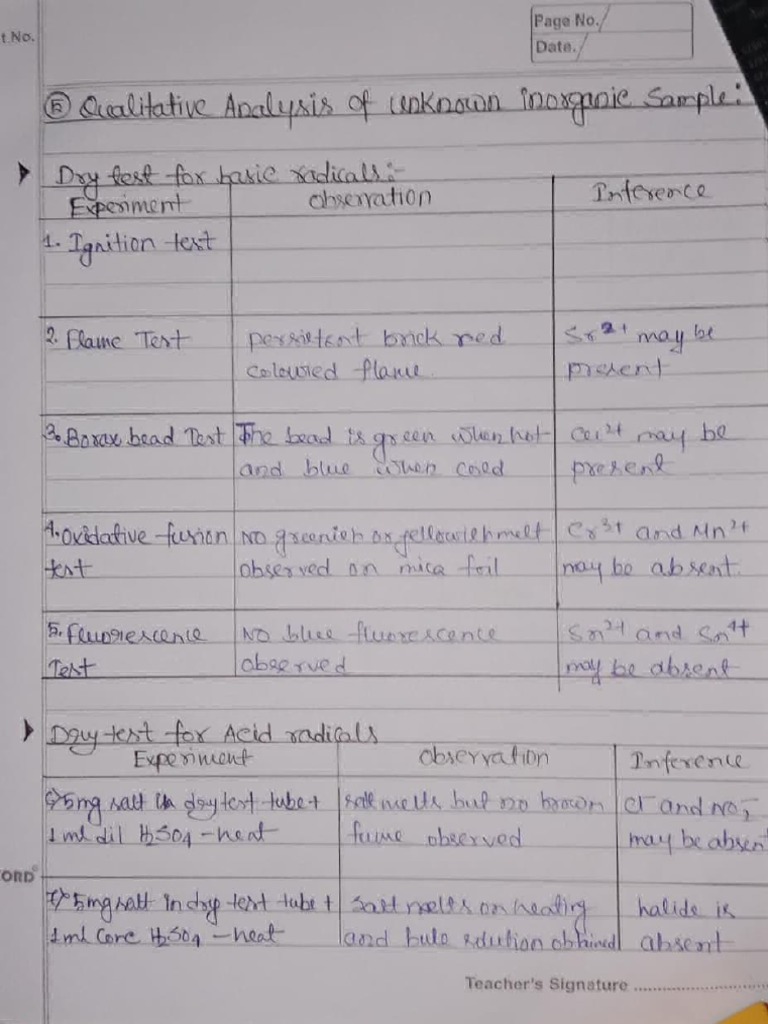 t. No.
Page No.
Date.
⑤ Qualitative Analysis of unknown inorganic Sample:
Dry test for basic radicals:-
Experiment observation Inference
1. Ignition test
2. Flame Test persistent brick red Sr²⁺ may be
coloured flame. present
3. Borax bead Test The bead is green when hot Cu²⁺ may be
and blue when cold present
4. Oxidative fusion No greenish or yellowish melt Cr³⁺ and Mn²⁺
test observed on mica foil may be absent.
5. Fluorescence No blue fluorescence Sn²⁺ and Sn⁴⁺
Test observed may be absent
Dry test for Acid radicals
Experiment observation Inference
5mg salt in dry test tube + salt melts but no brown Cl⁻ and NO₃⁻
1 ml dil H₂SO₄ - heat fume observed may be absent
5mg salt in dry test tube + Salt melts on heating halide is
1 ml conc H₂SO₄ - heat and solution obtained absent
ORD
Teacher's Signature